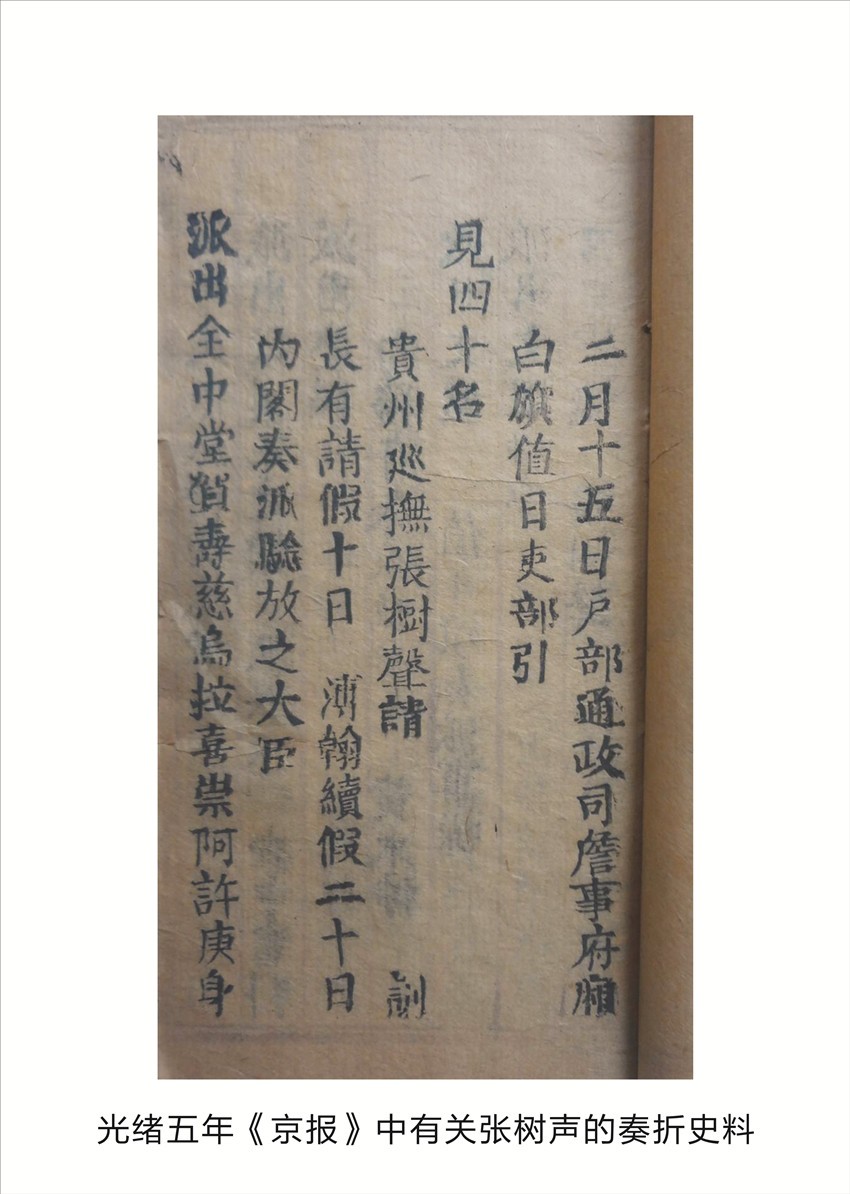 二月十五日戶部通政司詹事府廂
白旗值日吏部引
見四十名
貴州巡撫張樹聲請 訓
長有請假十日 溥翰續假二十日
內閣奏派驗放之大臣
派出全中堂賀壽慈烏拉喜崇阿許庚身
光绪五年《京报》中有关张树声的奏折史料